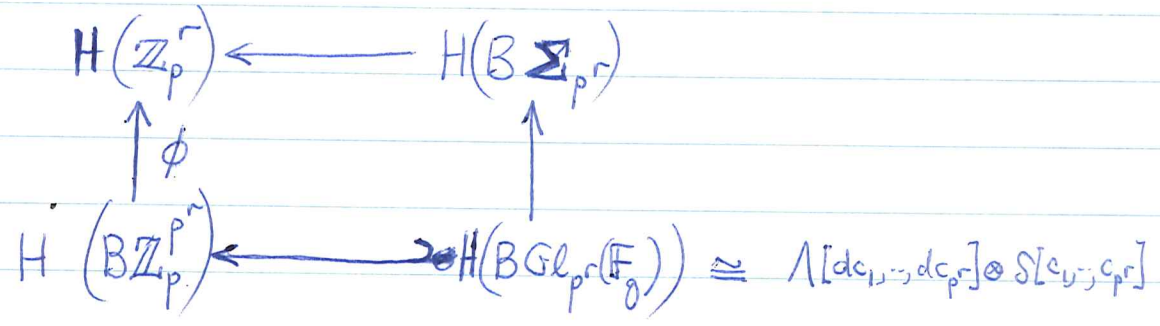 H(ℤ_p^r) ← H(BΣ_{p^r})
↑ φ ↑
H(Bℤ_p^{p^r}) ← H(BGl_{p^r}(𝔽_q)) ≅ Λ[dc_1,..,dc_{p^r}]⊗S[c_1,..,c_{p^r}]